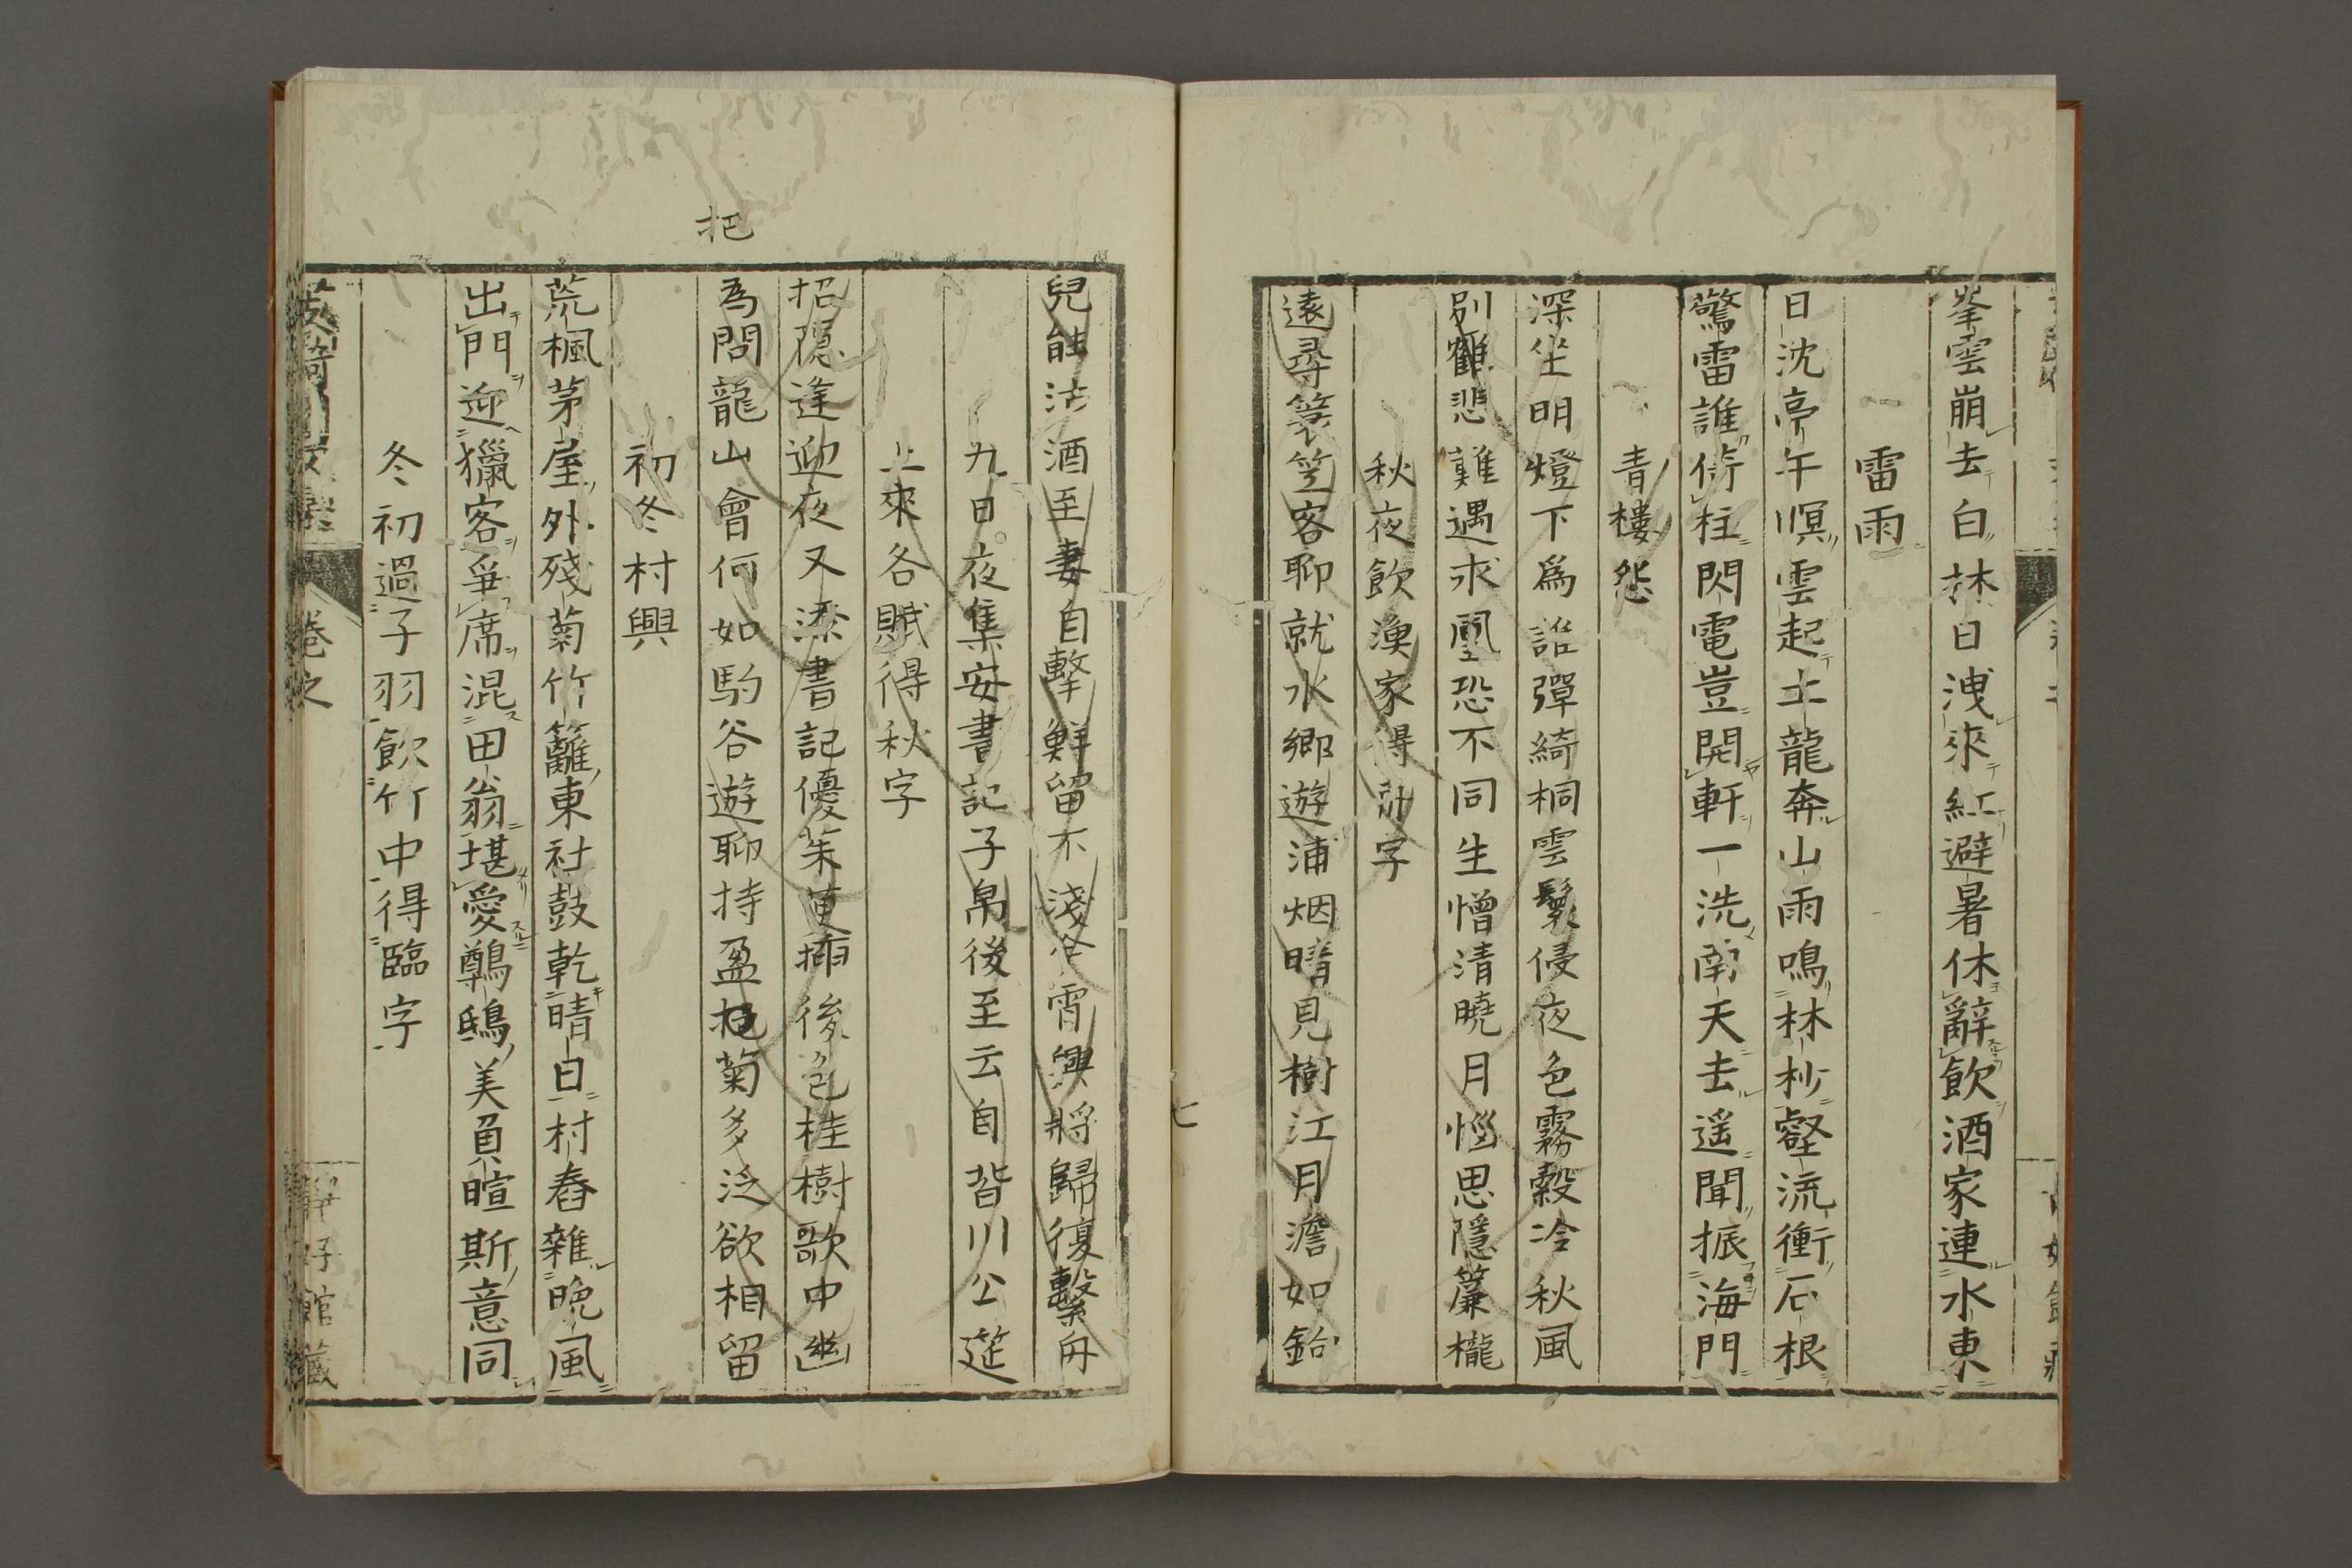 峯雲崩去白林日洩來紅避暑休辭飲酒家連水東
雷雨
日沈亭午暝雲起土龍奔山雨鳴林杪壑流衝石根
驚雷誰倚柱閃電豈開軒一洗南天去遥聞振海門
青樓怨
深坐明燈下爲誰彈綺桐雲鬟侵夜色霧縠冷秋風
別鶴悲難遇求凰恐不同生憎清曉月惱思隱簾櫳
秋夜飲漁家得舟字
遠尋簑笠客聊就水鄉遊浦烟晴見樹江月澹如鈎
七
兒能沽酒至妻自擊鮮留不淺今宵興將歸復繫舟
九日夜集安書記子帛後至云自皆川公莚
上來各賦得秋字
招隱逢迎夜又添書記優茱萸插後色桂樹歌中幽
把
為問龍山會何如駒谷遊聊持盈把菊多泛欲相留
初冬村興
荒楓茅屋外殘菊竹籬東社鼓乾晴日村舂雜晚風
出門迎獵客爭席混田翁堪愛鷫鴟美負暄斯意同
冬初過子羽飲竹中得臨字
卷之
館藏